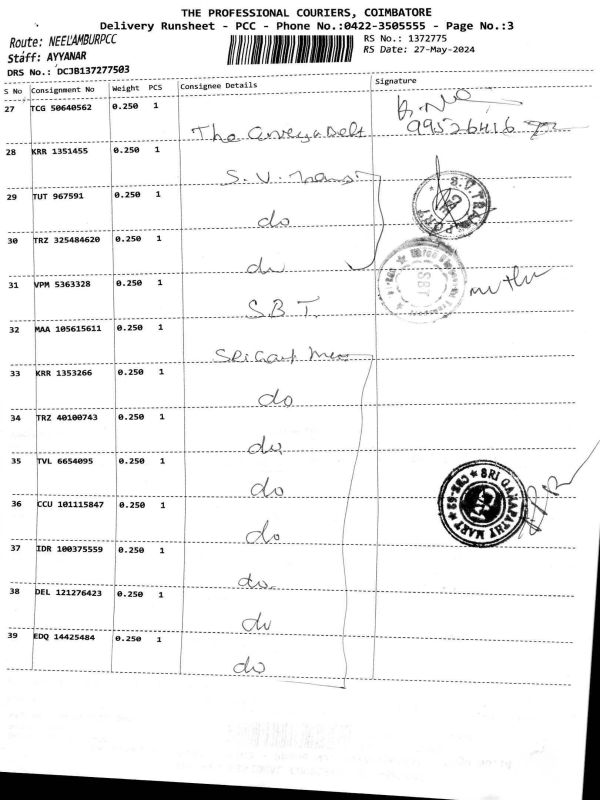 THE PROFESSIONAL COURIERS, COIMBATORE
Delivery Runsheet - PCC - Phone No.:0422-3505555 - Page No.:3
Route: NEELAMBURPCC
RS No.: 1372775
Staff: AYYANAR
RS Date: 27-May-2024
DRS No.: DCJB137277503
S No Consignment No Weight PCS Consignee Details Signature
27 TCG 50640562 0.250 1
The Conveya Belt 99526416
28 KRR 1351455 0.250 1
S. V. Trans.
29 TUT 967591 0.250 1
do
S.V. TRA PORT
30 TRZ 325484620 0.250 1
do
31 VPM 5363328 0.250 1
S.B.T.
SBT
muthu
32 MAA 105615611 0.250 1
33 KRR 1353266 0.250 1
do
34 TRZ 40100743 0.250 1
do
35 TVL 6654095 0.250 1
do
SRI GANAPATHY MART CBE-62
36 CCU 101115847 0.250 1
do
37 IDR 100375559 0.250 1
do
38 DEL 121276423 0.250 1
do
39 EDQ 14425484 0.250 1
do